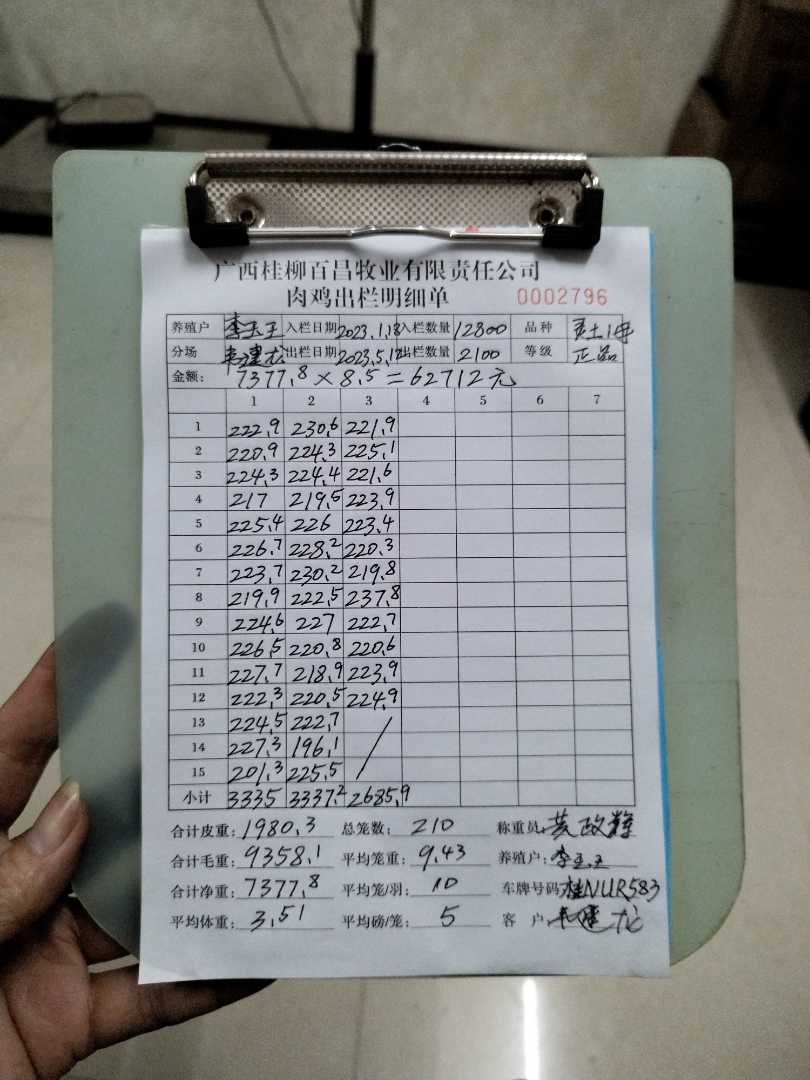 广西桂柳百昌牧业有限责任公司
肉鸡出栏明细单 0002796
养殖户 李玉王 入栏日期 2023.1.18 入栏数量 12800 品种 土1号
分场 韦建龙 出栏日期 2023.5.18 出栏数量 2100 等级 正品
金额: 7377.8×8.5=62712元
1 2 3 4 5 6 7
1 222.9 230.6 221.9
2 220.9 224.3 225.1
3 224.3 224.4 221.6
4 217 219.5 223.9
5 225.4 226 223.4
6 226.7 228.2 220.3
7 223.7 230.2 219.8
8 219.9 222.5 237.8
9 224.6 227 222.7
10 226.5 220.8 220.6
11 227.7 218.9 223.9
12 222.3 220.5 224.9
13 224.5 222.7
14 227.3 196.1
15 201.3 225.5
小计 3335 3337.2 2685.9
合计皮重: 1980.3 总笼数: 210 称重员: 黄政辉
合计毛重: 9358.1 平均笼重: 9.43 养殖户: 李玉王
合计净重: 7377.8 平均笼/羽: 10 车牌号码 桂NUR583
平均体重: 3.51 平均磅/笼: 5 客户: 韦建龙